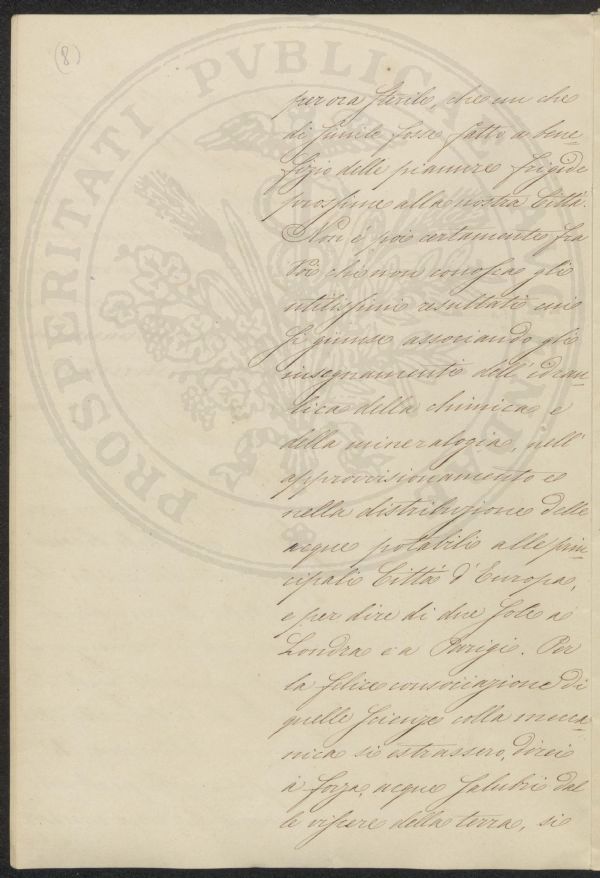 (8)
per ora sterile, che un che
di simile fosse fatto a bene=
fizio delle pianure frigide
prossime alla nostra Città.
Non è poi certamente fra
Voi chi non conosca gli
utilissimi resultati cui
si giunse associando gli
insegnamenti dell'idrau=
lica della chimica e
della mineralogia, nell'
approvvisionamento e
nella distribuzione delle
acque potabili alle prin=
cipali Città d'Europa,
e per dire di due sole a
Londra e a Parigi. Per
la felice consociazione di
quelle scienze colla mecca=
nica si estrassero, direi
a forza, acque salubri dal
le viscere della terra, si
PROSPERITATI PVBLICAE